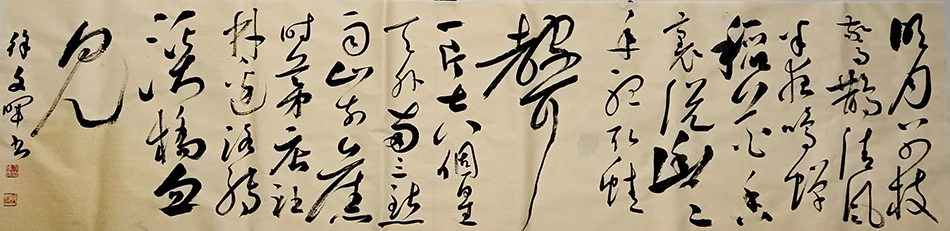 明月别枝
驚鵲清風
半夜鳴蟬
稻花香
裏說豐
年聽取蛙
聲
一片七八個星
天外兩三點
雨山前舊
時茅店社
林邊路轉
溪橋忽
見
徐文暉书